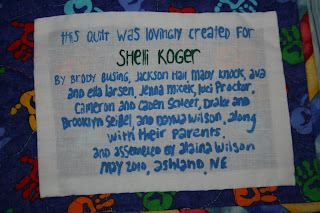 This quilt was lovingly created for
Shelli Koger
By Brody Busing, Jackson Hall, Mady Knock, Ava
and Ella Larsen, Jenna Micek, Luci Proctor,
Cameron and Caden Scheer, Drake and
Brooklyn Seibel and Dayna Wilson, along
with their parents.
and assembled by Alaina Wilson
May 2010, Ashland, NE